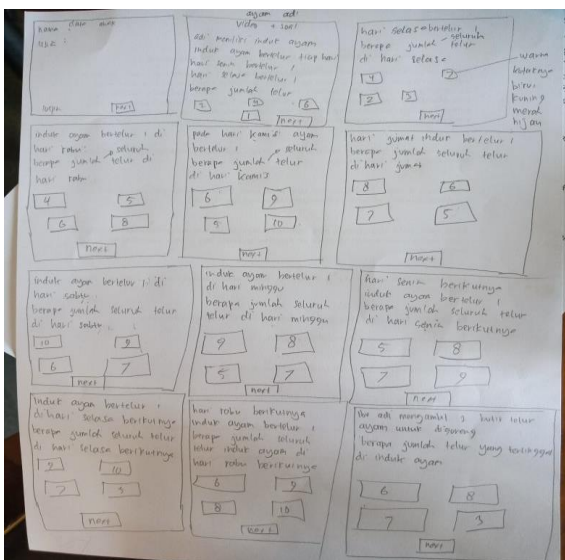 nama dan
next
ayam adi
video + soal
adi memiliki induk ayam
induk ayam bertelur tiap hari
hari senin bertelur 1
hari selasa bertelur 1
berapa jumlah telur
1
next
hari selasa bertelur 1
berapa jumlah seluruh telur
di hari selasa
4
2
3
next
warna
kotaknya
biru
kuning
merah
hijau
induk ayam bertelur 1 di
hari rabu
berapa jumlah seluruh telur di
hari rabu
4
5
6
8
next
pada hari kamis ayam
bertelur 1
berapa jumlah seluruh telur
di hari kamis
6
9
5
10
next
hari jumat induk bertelur 1
berapa jumlah seluruh telur
di hari jumat
8
6
7
5
next
induk ayam bertelur 1 di
hari sabtu
berapa jumlah seluruh telur
di hari sabtu
10
9
6
7
next
induk ayam bertelur 1
di hari minggu
berapa jumlah seluruh
telur di hari minggu
9
8
5
7
next
hari senin berikutnya
induk ayam bertelur 1
berapa jumlah seluruh telur
di hari senin berikutnya
5
8
7
9
next
induk ayam bertelur 1
di hari selasa berikutnya
berapa jumlah seluruh telur
di hari selasa berikutnya
9
10
7
3
next
hari rabu berikutnya
induk ayam bertelur 1
berapa jumlah seluruh
telur induk ayam di
hari rabu berikutnya
6
9
8
10
next
ibu adi mengambil 2 butir telur
ayam untuk digoreng
berapa jumlah telur yang tertinggal
di induk ayam
6
8
7
3
next